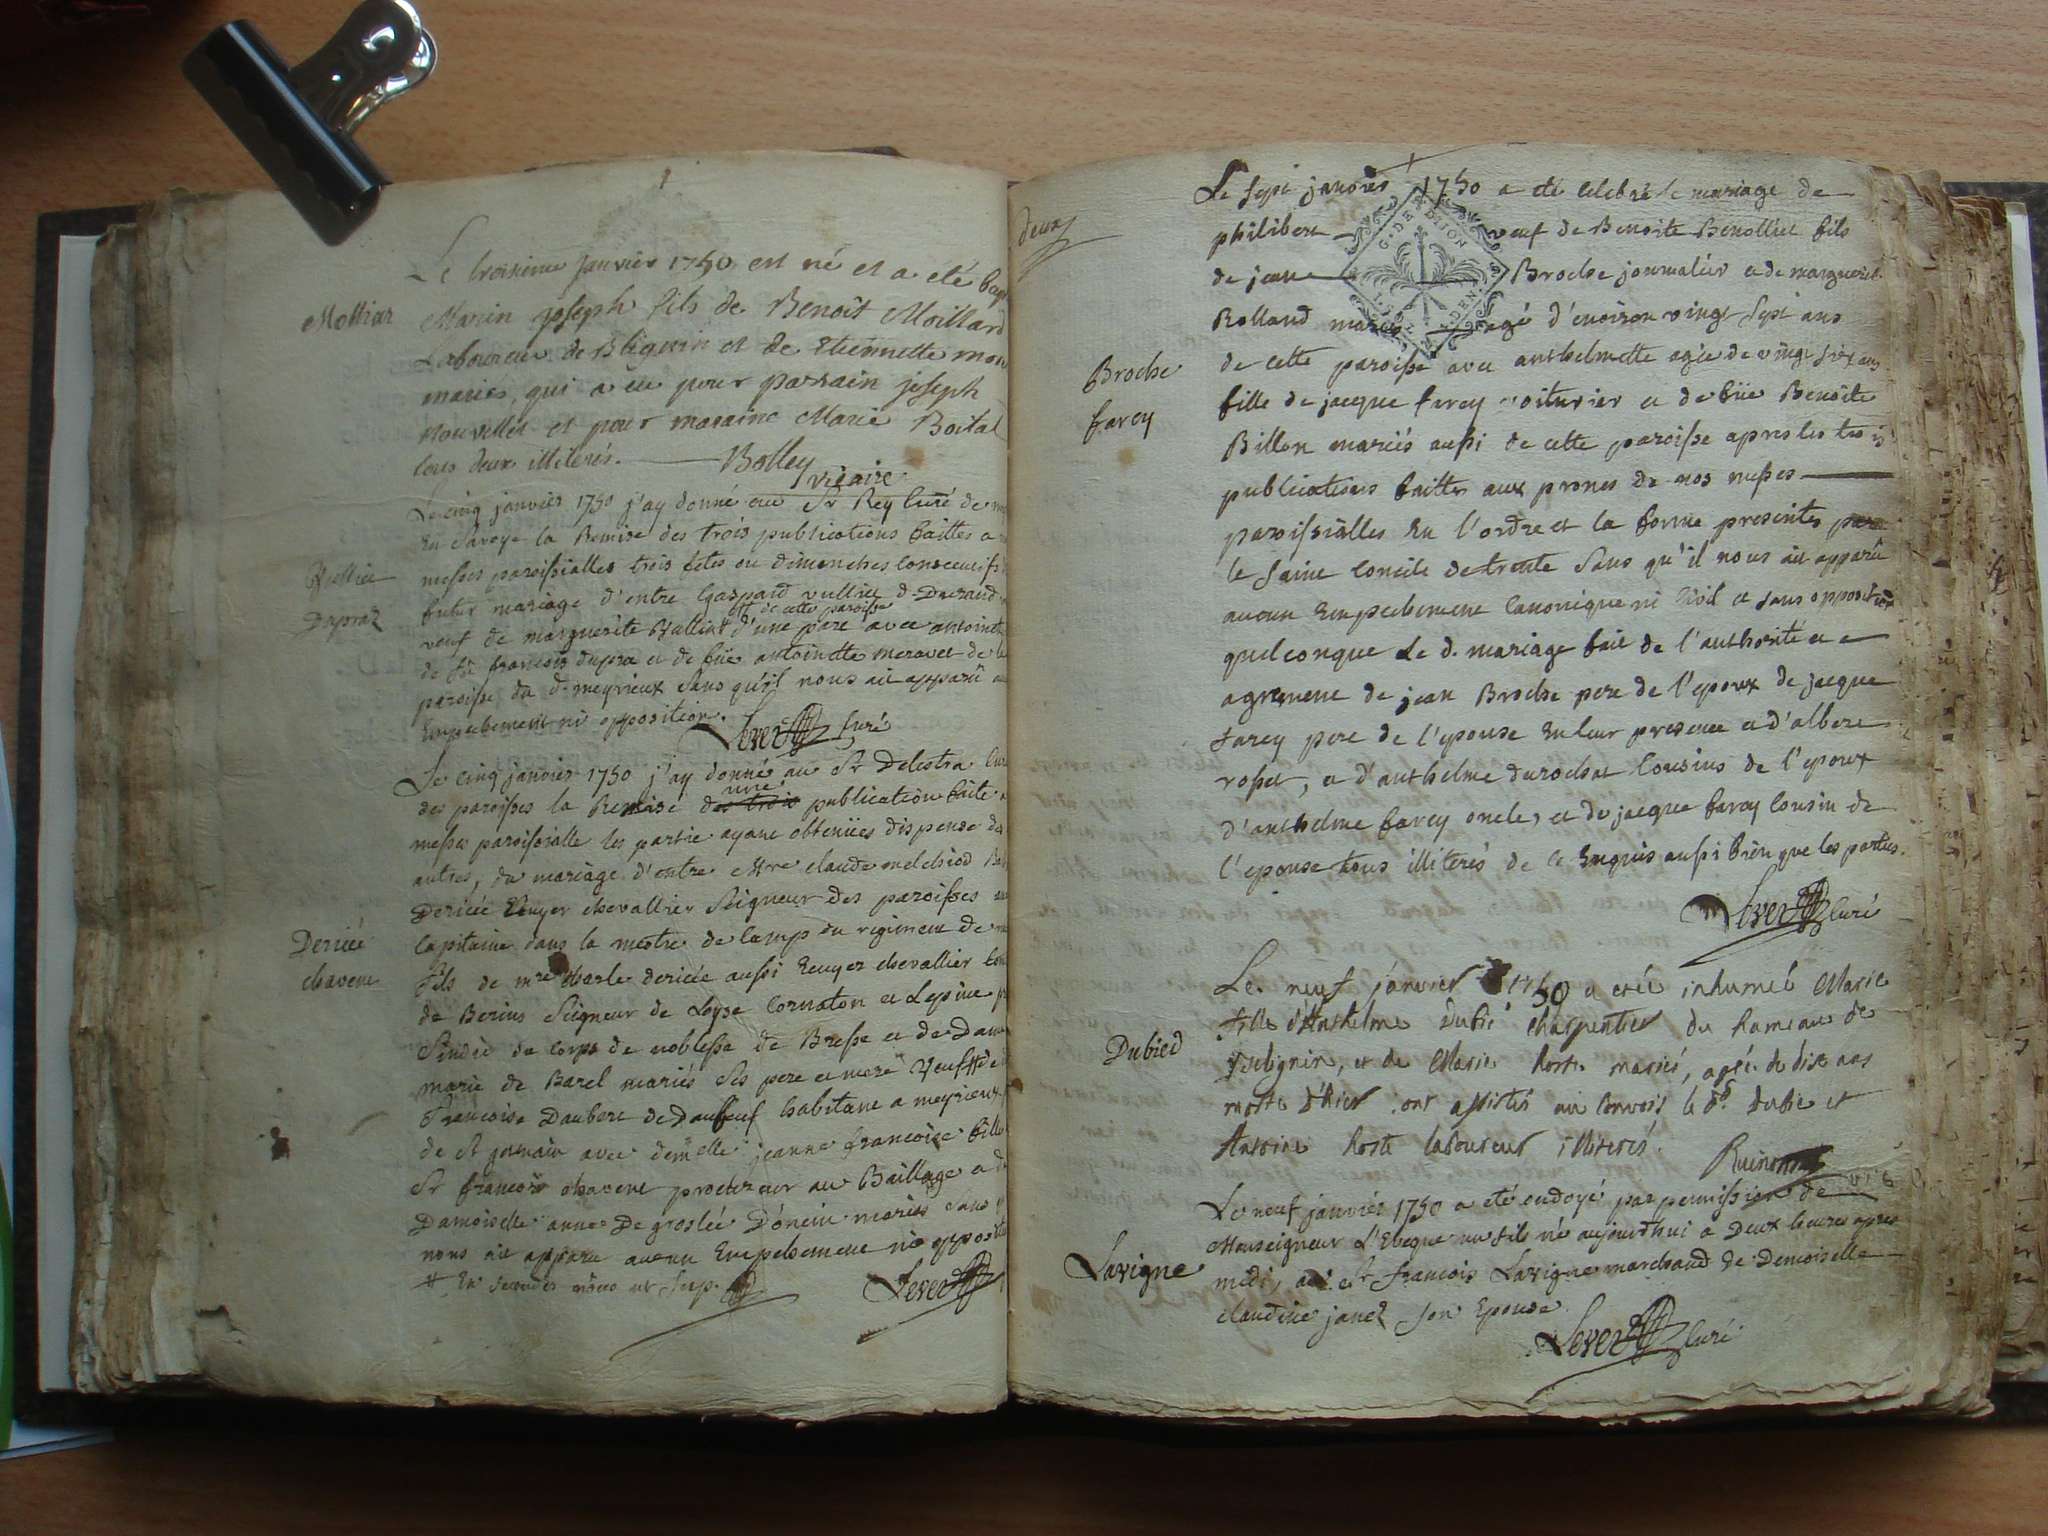 Le troisieme Janvier 1750 est né et a eté bap
Molliar
Marin joseph fils de Benoit Moillard
Laboureur de Bliguin et de Etiennette mon
mariés, qui a eu pour parrain joseph
et pour maraine Marie Boital
tous deux illiterés. Bolley
vicaire
Le cinq janvier 1750 j'ay donné au Sr Rey Curé de
En Savoye la Remise des trois publications faittes a
Vullier
messes paroissialles trois fetes ou dimanches consecutifs
Dupraz
futur mariage d'entre Gaspard vullier
de cette paroisse
veuf de marguerite d'une part avec antoinette
de fû francois dupra et de fûe antoinette meravet de
paroisse du d. meyrieux sans qu'il nous ait apparû
Empechement ni opposition.
Curé
Le cinq janvier 1750 j'ay donné au Sr Delestra Cur
une
des paroisses la Remise des trois publication faite
messes paroissialle les partie ayant obtenües dispense des
autres, du mariage d'entre Mre claude melchiod
Dericée Ecuyer chevallier Seigneur des paroisses
Dericée
Capitaine dans la mestre de Camp du regiment de
chavent
fils de mre Charle dericée aussi Ecuyer chevallier
de Berins Seigneur de Loyse Cornaton et Lepine
Sindic du corps de noblesse de Bresse et de Dam
marie de Barel mariés ses pere et mere Veuf # de
Francoise Daubert de Daubeuf habitant a meyrieux
de St germain avec demelle jeanne francoise fille
Sr francois chavent procureur au Baillage
Damoiselle anne De groslée D'onein mariés sans
nous ait apparu aucun Empechement ni opposition
# En secondes
deux
Le sept janvier 1750 a eté celebré le mariage de
G. DE DIJON
philibert veuf de Benoite Benollier fils
de jean Broche journalier et de marguerit
Rolland mariés agé d'environ vingt sept ans
Broche
de cette paroisse avec anthelmette agée de vingt six ans
farcy
fille de jacque farcy voiturier et de fûe Benoite
Billon mariés aussi de cette paroisse apres les trois
publications faittes aux prones de nos messes
paroissialles En l'ordre et la forme presentes par
le saint Concile de trente sans qu'il nous ait apparû
aucun Empechement Canonique ni Civil et sans opposition
quelconque Le d. mariage fait de l'authorité et
agrement de jean Broche pere de l'epoux de jacque
farcy pere de l'epouse En leur presence et d'albert
rosset, et d'anthelme durochat Cousins de l'epoux
d'anthelme farcy oncle, et de jacque farcy Cousin de
l'epouse tous illiterés de ce Enquis aussi bien que les parties.
Curé
Le neuf janvier 1750 a etée inhumeé Marie
fille d'Anthelme Dubié charpentier du hameau de
Dubied
et de Marie hoste mariés, agée de dix ans
morte d'hier ont assistés au convois le d. Dubie et
Antoine hoste laboureur illiterés.
Le neuf janvier 1750 a eté ondoyé par permission de
Monseigneur L'Eveque un fils né aujourdhui a Deux heures apres
Lavigne
midi, au Sr francois Lavigne marchand de Demoiselle
claudine janet son Epouse.
Curé